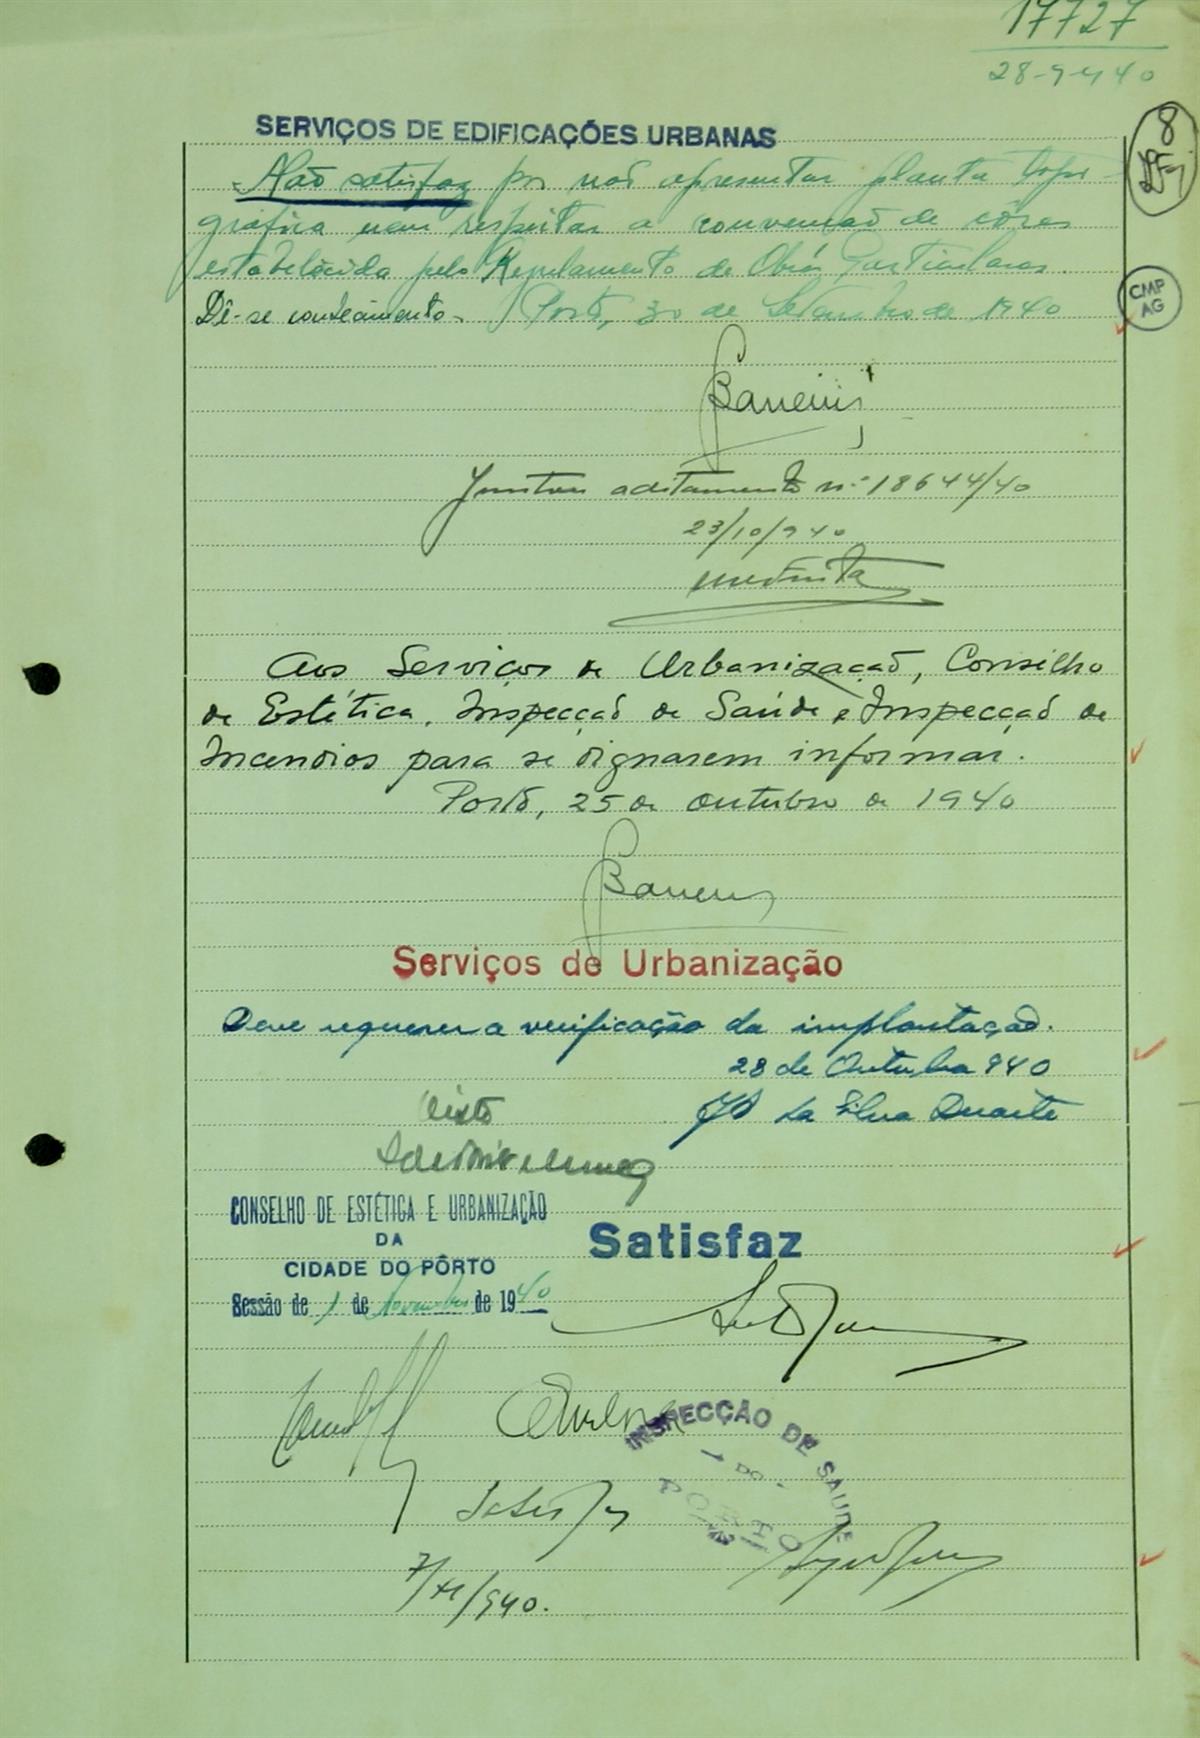 17727
28-9-940
8
SERVIÇOS DE EDIFICAÇÕES URBANAS
Não satisfaz por não apresentar planta topo-
gráfica nem respeitar a convenção de côres
estabelecida pelo Regulamento de Obras Particulares.
Dê-se conhecimento. Porto, 30 de Setembro de 1940
CMP
AG
Juntou aditamento nº 18644/40
23/10/940
Aos Serviços de Urbanização, Conselho
de Estética, Inspecção de Saúde e Inspecção de
Incendios para se dignarem informar.
Porto, 25 de Outubro de 1940
Serviços de Urbanização
Deve requerer a verificação da implantação.
28 de Outubro 940
da Silva Duarte
Visto
CONSELHO DE ESTÉTICA E URBANIZAÇÃO
DA
CIDADE DO PÔRTO
Sessão de 1 de Novembro de 1940
Satisfaz
INSPECÇÃO DE SAUDE
DO
PORTO
7/XI/940.